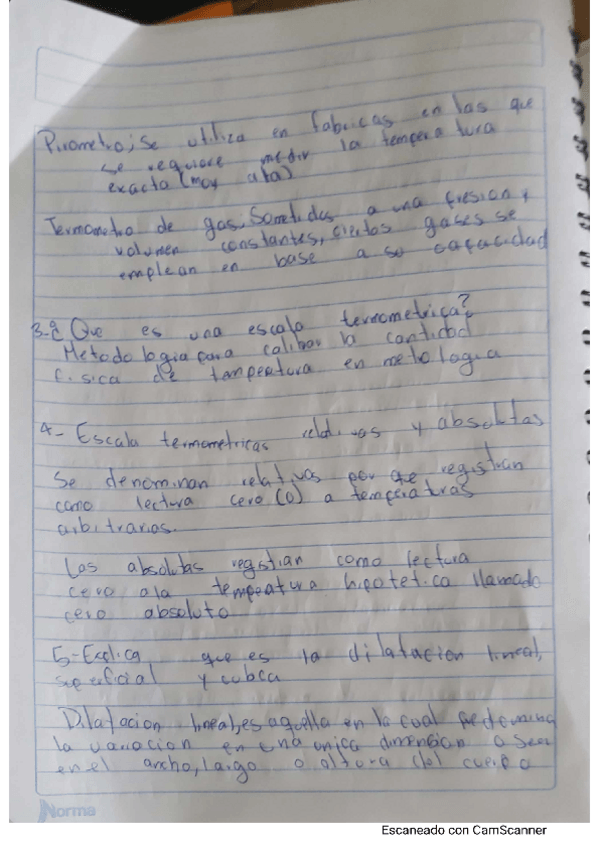 Pirometro; Se utiliza en fabricas en las que
se requiere medir la temperatura
exacta (muy alta)
Termometro de gas. Sometidos a una presion y
volumen constantes, ciertos gases se
emplean en base a su capacidad
3-¿ Que es una escala termometrica?
Metodologia para calibrar la cantidad
fisica de tempertura en metologia
4- Escala termometricas relativas y absolutas
Se denominan relativas por que registran
como lectura cero (0) a temperaturas
arbitrarias.
Las absolutas registran como lectura
cero a la tempeatura hipotetica llamado
cero absoluto
5-Explica que es la dilatacion lineal,
superficial y cubca
Dilatacion lineal: es aquella en la cual predomina
la variacion en una unica dimension o sea
en el ancho, largo o altura del cuerpo
Norma
Escaneado con CamScanner